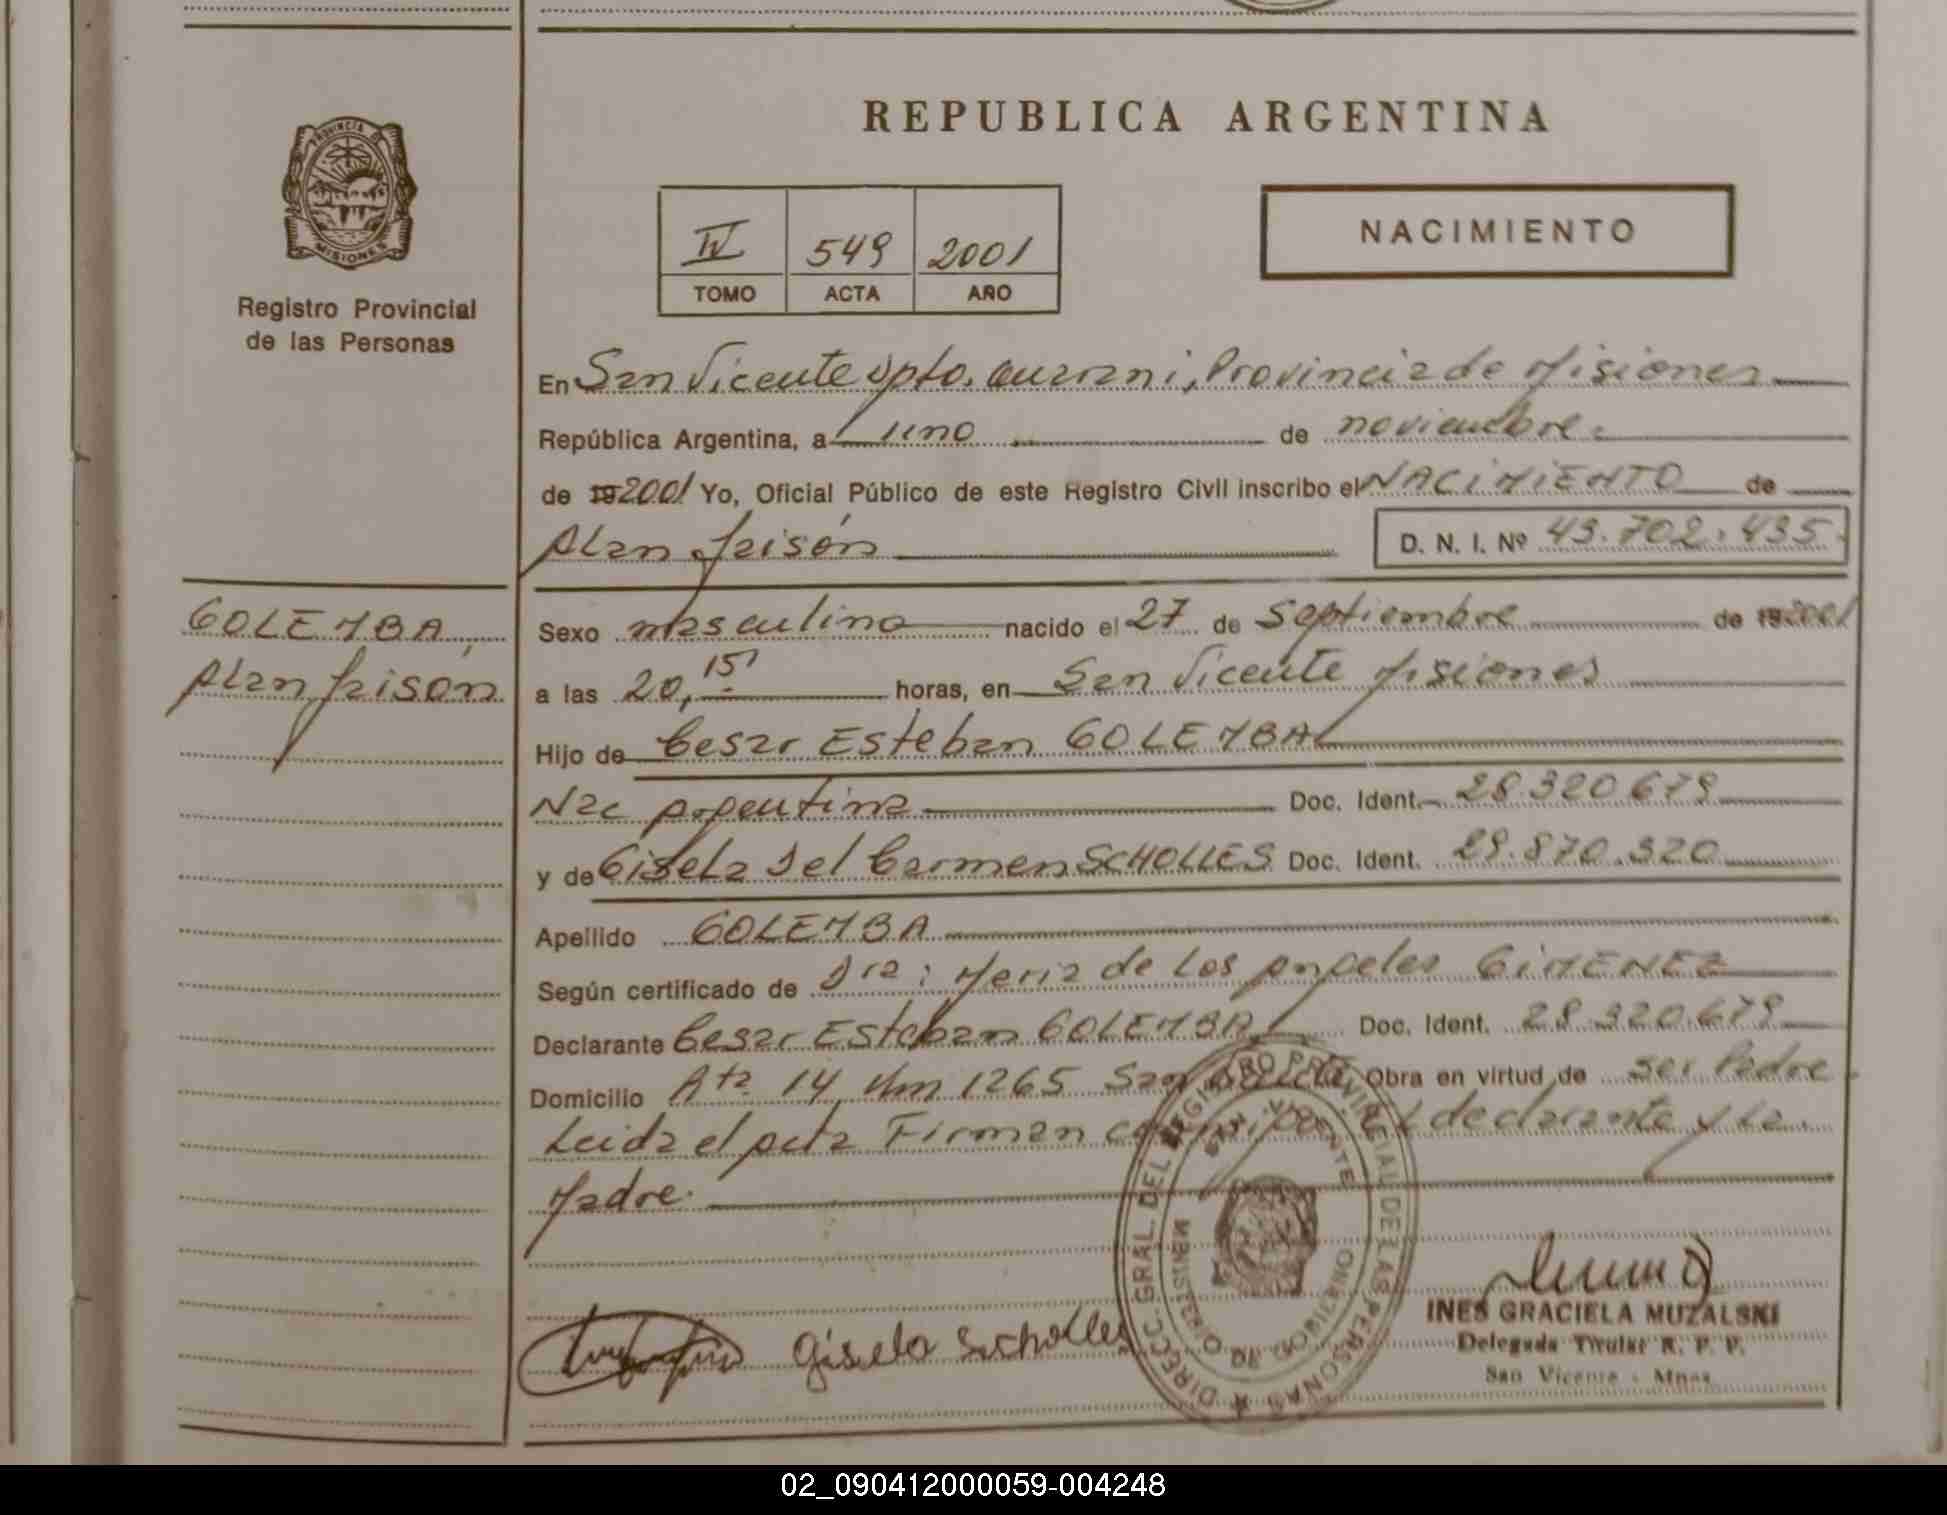 REPUBLICA ARGENTINA
PROVINCIA DE
MISIONES
Registro Provincial
de las Personas
IV 549 2001
TOMO ACTA AÑO
NACIMIENTO
En San Vicente Dpto. Guarani, Provincia de Misiones
República Argentina, a uno de noviembre.
de 192001 Yo, Oficial Público de este Registro Civil inscribo el NACIMIENTO de
Alan Jaisón D. N. I. Nº 43.702.435.
GOLEMBA,
Alan Jaisón
Sexo masculino nacido el 27 de Septiembre de 192001
a las 20,15' horas, en San Vicente Misiones
Hijo de Cesar Esteban GOLEMBA
Nac Argentina Doc. Ident. 28.320.679
y de Gisela Del Carmen SCHOLLES Doc. Ident. 29.870.320
Apellido GOLEMBA
Según certificado de Dra: Maria de Los Angeles GIMENEZ
Declarante Cesar Esteban GOLEMBA Doc. Ident. 28.320.679
Domicilio Rta 14 Km 1265 San Vicente Obra en virtud de ser Padre.
Leida el acta Firman conmigo el declarante y la
Madre.
DIRECC. GRAL. DEL REGISTRO PROVINCIAL DE LAS PERSONAS
MINISTERIO DE GOBIERNO
SAN VICENTE
Gisela Scholles
INES GRACIELA MUZALSKI
Delegada Titular R. P. P.
San Vicente - Mnes
02_090412000059-004248